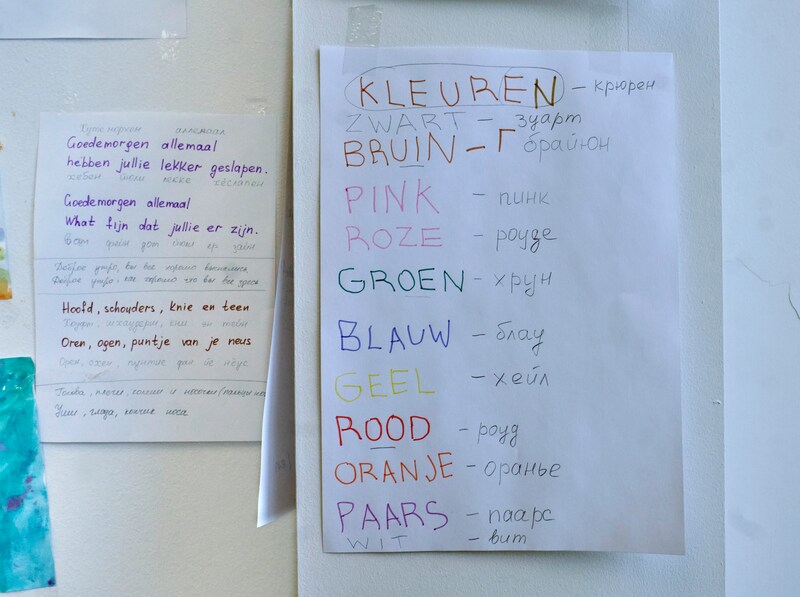 Гутеморхен аллемаал
Goedemorgen allemaal
hebben jullie lekker geslapen.
хебен лекке хеслапен
Goedemorgen allemaal
What fijn dat jullie er zijn.
Ват фейн дат ер зейн
Доброе утро, вы все хорошо выспались,
Доброе утро, как хорошо что вы все здесь
Hoofd, schouders, knie en teen
Oren, ogen, puntje van je neus
Орен, охен, пунтье фан йе нёус
Голова, плечи, колени и носочки
Уши, глаза, кончик носа
KLEUREN - крюрен
ZWART - зуарт
BRUIN - Г брайюн
PINK - пинк
ROZE - роузе
GROEN - хрун
BLAUW - блау
GEEL - хейл
ROOD - роуд
ORANJE - оранье
PAARS - паарс
WIT - вит